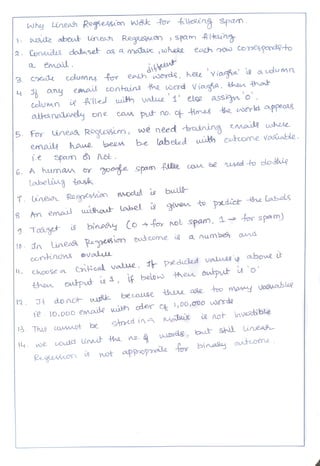 Why Linear Regression Work for filtering Spam.
1. Write about Linear Regression, spam filtering
2. Consider dataset as a matrix, where each row corresponds to
a email.
3. Create columns for each different words, here 'Viagra' is a column
4 If any email contains the word Viagra, then that
column is filled with value '1' else assign '0'.
alternatively one can put no. of times the world appears
5. For Linear Regression, we need training emails where
emails have been be labeled with outcome variable.
i.e Spam or Not.
6. A human or google spam filter can be used to do this
labeling task
7. Linear Regression model is built
8 An email without label is given to predict the labels
9 Target is binary (0 → for not spam, 1 → for spam)
10. In Linear Regression outcome is a number and
continous value
11. choose a Critical value. If predicted value is above it
then output is 1, if below then output is '0'
12. It donot work because there are too many variables
i.e. 10,000 emails with oder of 1,00,000 words
13. This cannot be stored in a matrix is not invertible
14. we could limit the no. of words, but still Linear
Regression is not appropriate for binary outcome.